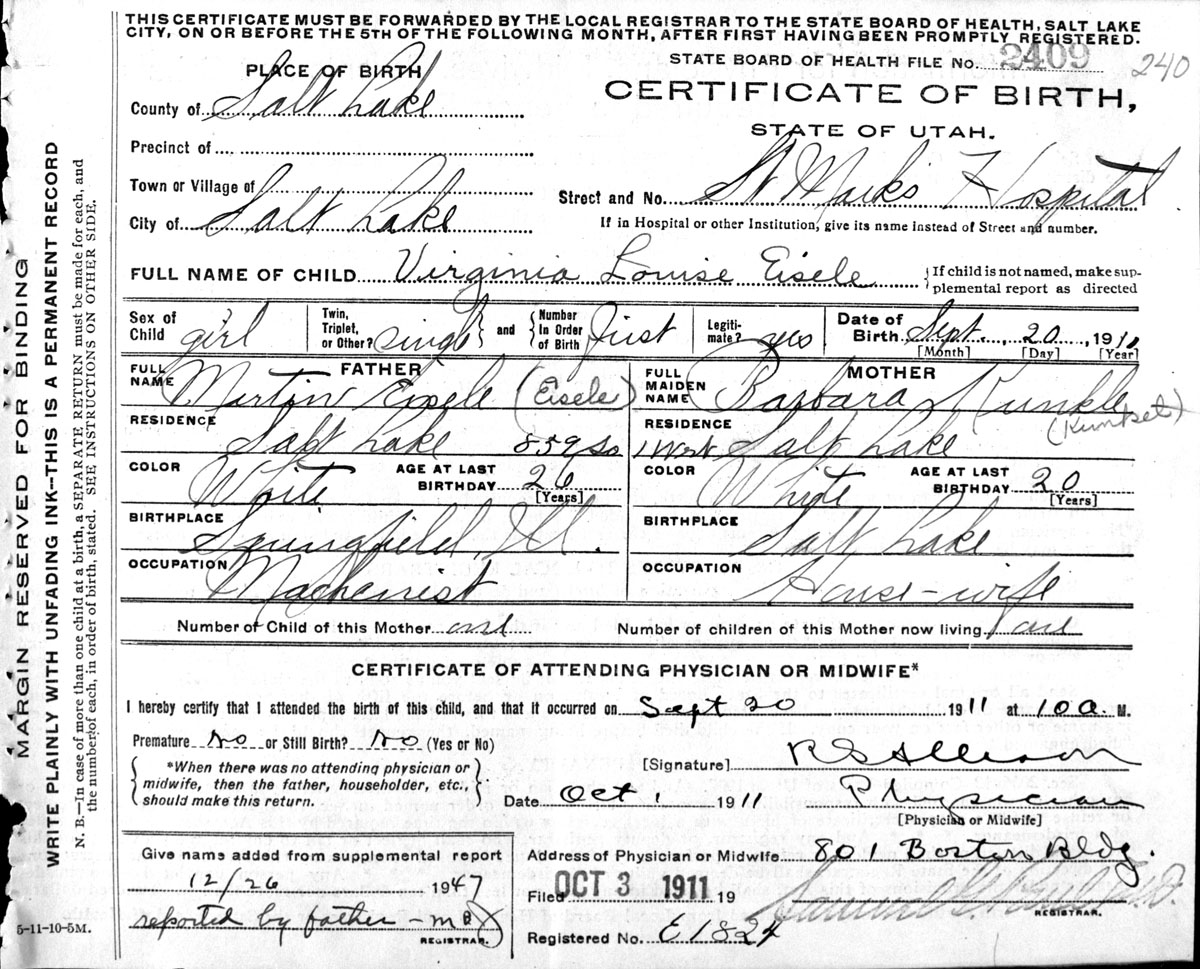 THIS CERTIFICATE MUST BE FORWARDED BY THE LOCAL REGISTRAR TO THE STATE BOARD OF HEALTH, SALT LAKE
CITY, ON OR BEFORE THE 5TH OF THE FOLLOWING MONTH, AFTER FIRST HAVING BEEN PROMPTLY REGISTERED.
STATE BOARD OF HEALTH FILE No. 2409 240
PLACE OF BIRTH
CERTIFICATE OF BIRTH,
STATE OF UTAH.
County of Salt Lake
Precinct of
Town or Village of
Street and No. St Marks Hospital
City of Salt Lake
If in Hospital or other Institution, give its name instead of Street and number.
FULL NAME OF CHILD Virginia Louise Eisele
{If child is not named, make sup-
plemental report as directed
Sex of Child girl
Twin, Triplet, or Other? single
and
Number In Order of Birth first
Legiti-mate? yes
Date of Birth Sept. 20, 1911
[Month] [Day] [Year]
FATHER
FULL NAME Martin Eisele (Eisele)
MOTHER
FULL MAIDEN NAME Barbara Kunkle
RESIDENCE Salt Lake 859 So 1 West
RESIDENCE Salt Lake
COLOR White
AGE AT LAST BIRTHDAY 26 [Years]
COLOR White
AGE AT LAST BIRTHDAY 20 [Years]
BIRTHPLACE Springfield Ill.
BIRTHPLACE Salt Lake
OCCUPATION Machenist
OCCUPATION House-wife
Number of Child of this Mother one
Number of children of this Mother now living one
CERTIFICATE OF ATTENDING PHYSICIAN OR MIDWIFE*
I hereby certify that I attended the birth of this child, and that it occurred on Sept 20 1911 at 10 a. M.
Premature No or Still Birth? No (Yes or No)
{*When there was no attending physician or
midwife, then the father, householder, etc.,
should make this return.}
[Signature] R S Allison
Date Oct 1 1911 Physician
[Physician or Midwife]
Give name added from supplemental report
12/26 1947
reported by father - 
REGISTRAR.
Address of Physician or Midwife 801 Boston Bldg.
Filed OCT 3 1911 19
REGISTRAR.
Registered No. E1824
5-11-10-5M.
MARGIN RESERVED FOR BINDING
WRITE PLAINLY WITH UNFADING INK--THIS IS A PERMANENT RECORD
N. B.--In case of more than one child at a birth, a SEPARATE RETURN must be made for each, and
the number of each, in order of birth, stated. SEE INSTRUCTIONS ON OTHER SIDE.